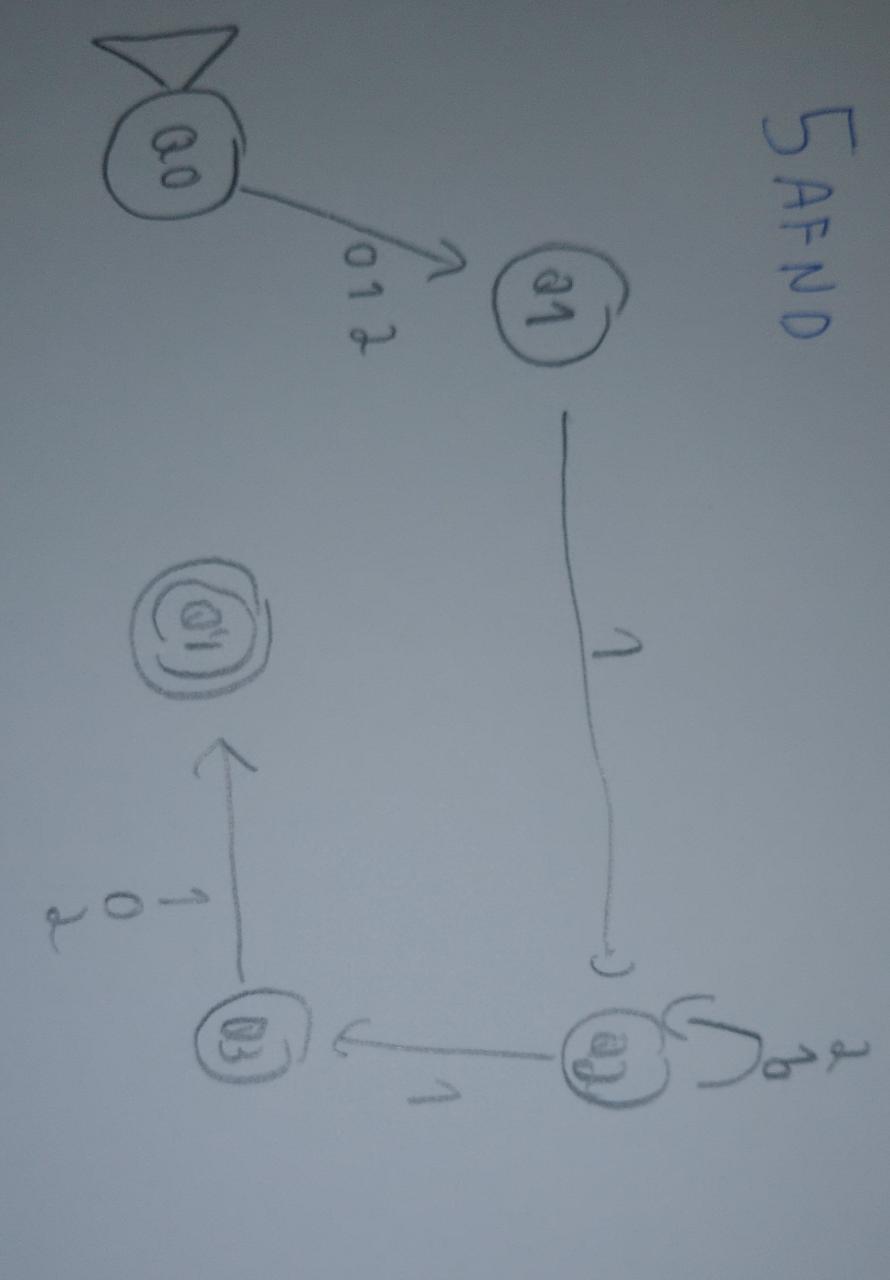 5 AFND
Q0
0 1 2
Q1
1
2
1 0
Q2
1
Q3
1
0
2